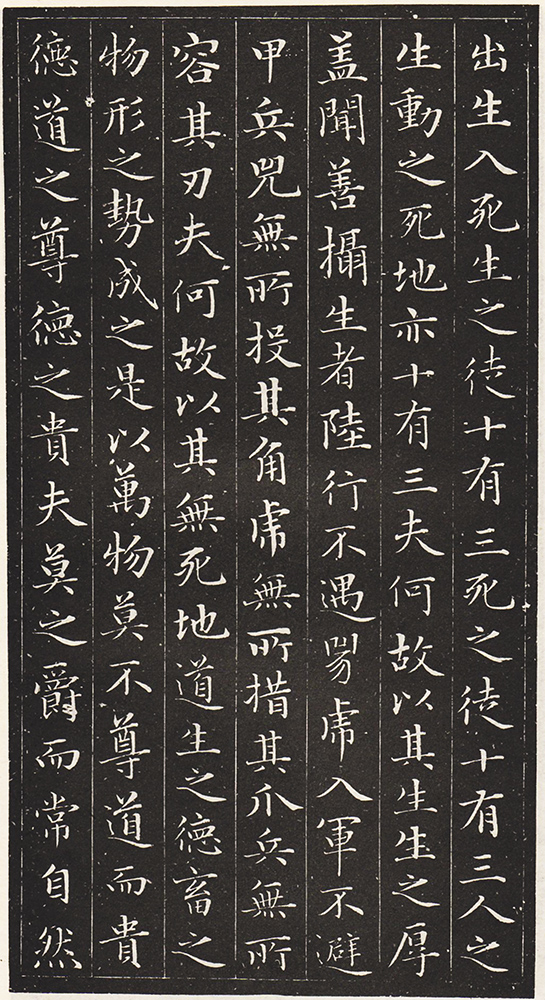 出生入死生之徒十有三死之徒十有三人之
生動之死地亦十有三夫何故以其生生之厚
蓋聞善攝生者陸行不遇兕虎入軍不避
甲兵兕無所投其角虎無所措其爪兵無所
容其刃夫何故以其無死地道生之德畜之
物形之勢成之是以萬物莫不尊道而貴
德道之尊德之貴夫莫之爵而常自然